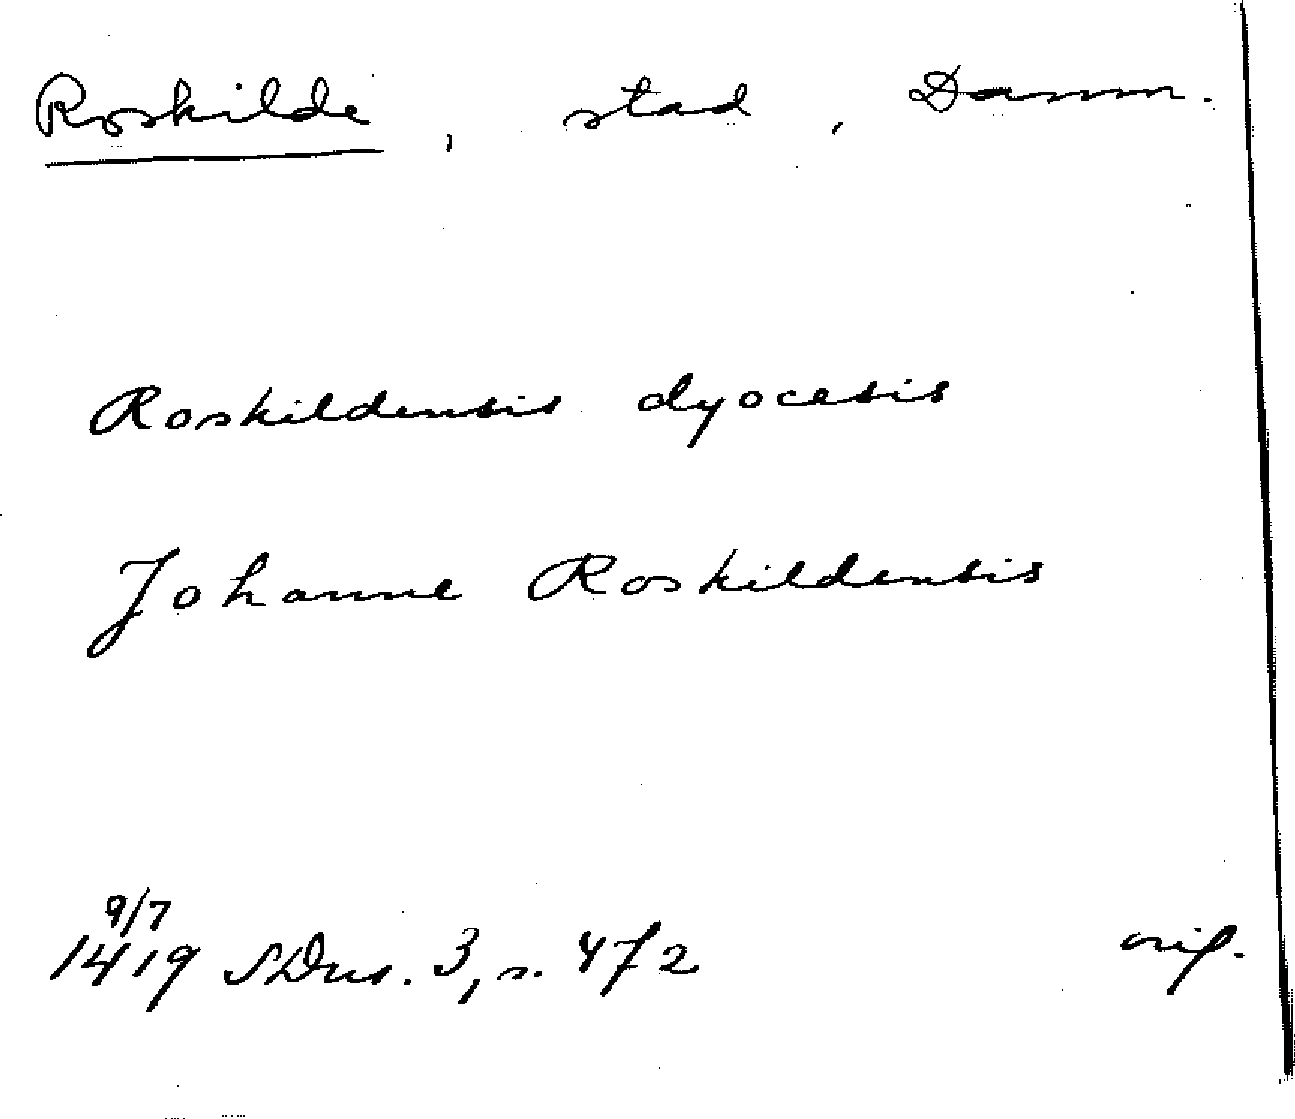 Roskilde, stad, Danm.
Roskildensis dyocesis
Johanne Roskildensis
9/7
1419 SDns. 3, s. 472 orig.